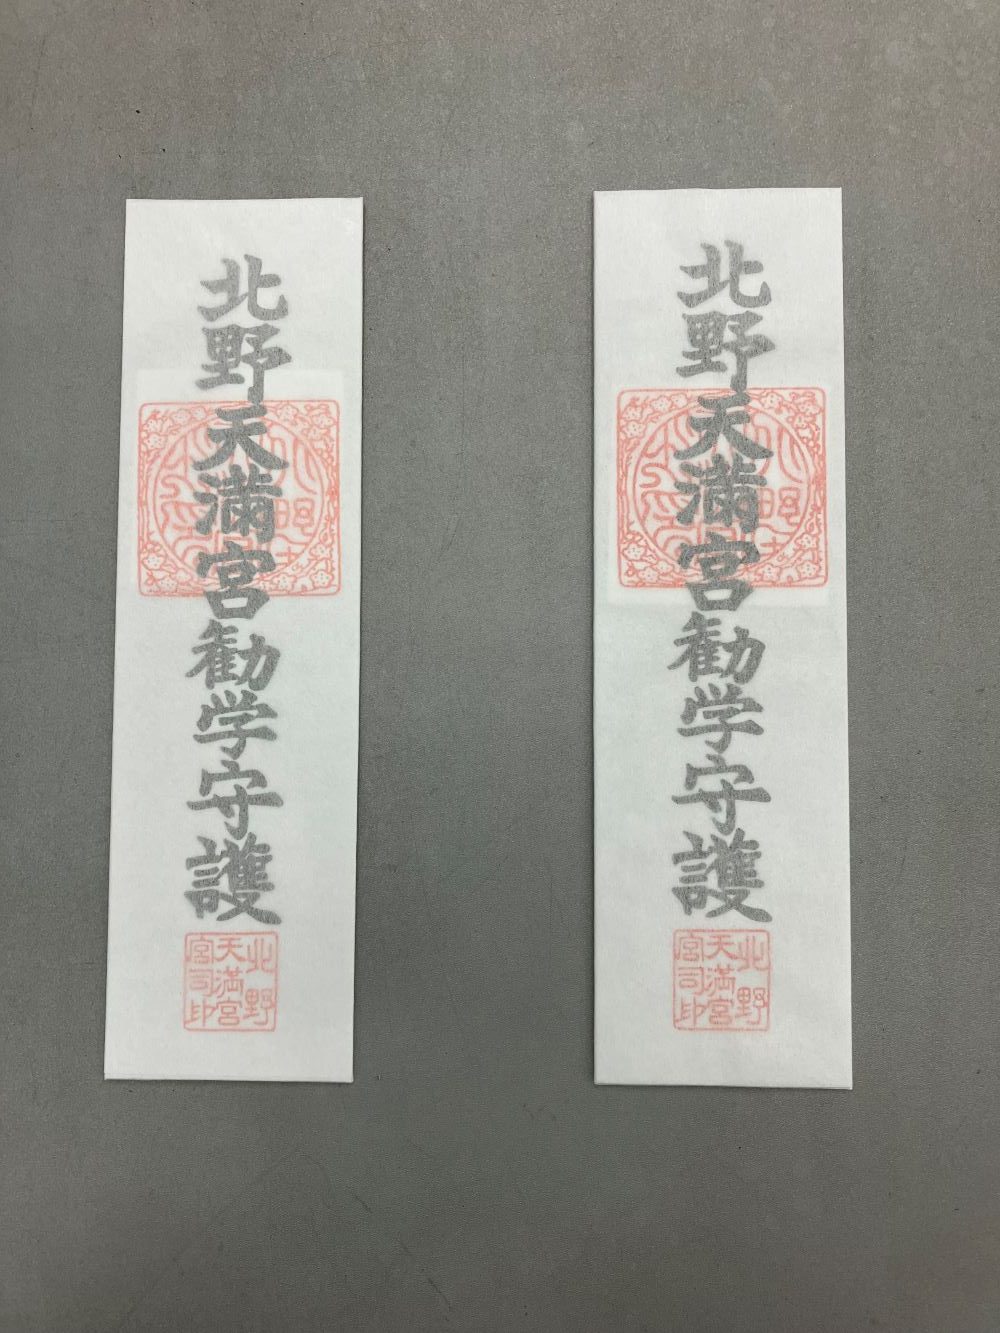 北野天満宮勧学守護
北野
天満宮
宮司印
北野天満宮勧学守護
北野
天満宮
宮司印